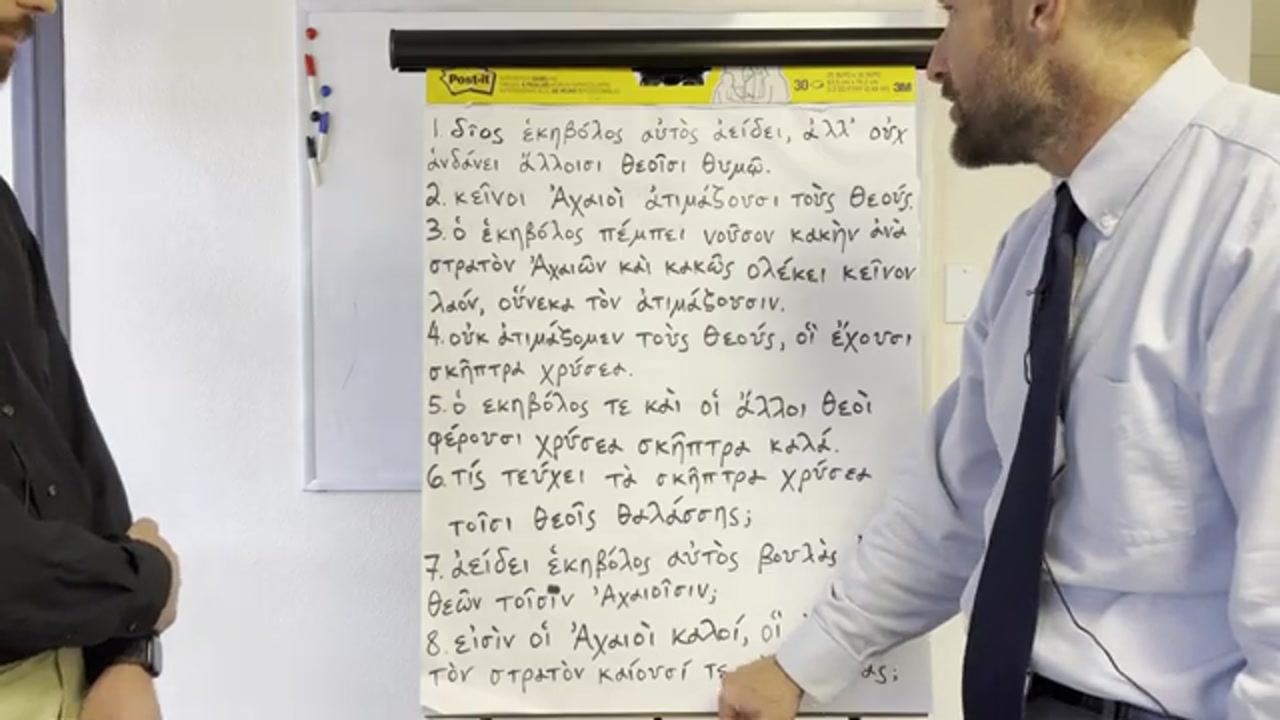 Post-it
30
3M
1. δῖος ἑκηβόλος αὐτὸς ἀείδει, ἀλλ' οὐχ
ἁνδάνει ἄλλοισι θεοῖσι θυμῷ.
2. κεῖνοι Ἀχαιοὶ ἀτιμάζουσι τοὺς θεούς.
3. ὁ ἑκηβόλος πέμπει νοῦσον κακὴν ἀνὰ
στρατὸν Ἀχαιῶν καὶ κακῶς ὀλέκει κεῖνον
λαόν, οὕνεκα τὸν ἀτιμάζουσιν.
4. οὐκ ἀτιμάζομεν τοὺς θεούς, οἳ ἔχουσι
σκῆπτρα χρύσεα.
5. ὁ εκηβόλος τε καὶ οἱ ἄλλοι θεοὶ
φέρουσι χρύσεα σκῆπτρα καλά.
6. τίς τεύχει τὰ σκῆπτρα χρύσεα
τοῖσι θεοῖς θαλάσσης;
7. ἀείδει ἑκηβόλος αὐτὸς βουλὰς
θεῶν τοῖσιν Ἀχαιοῖσιν;
8. εἰσὶν οἱ Ἀχαιοὶ καλοί, οἳ
τὸν στρατὸν καίουσί τε